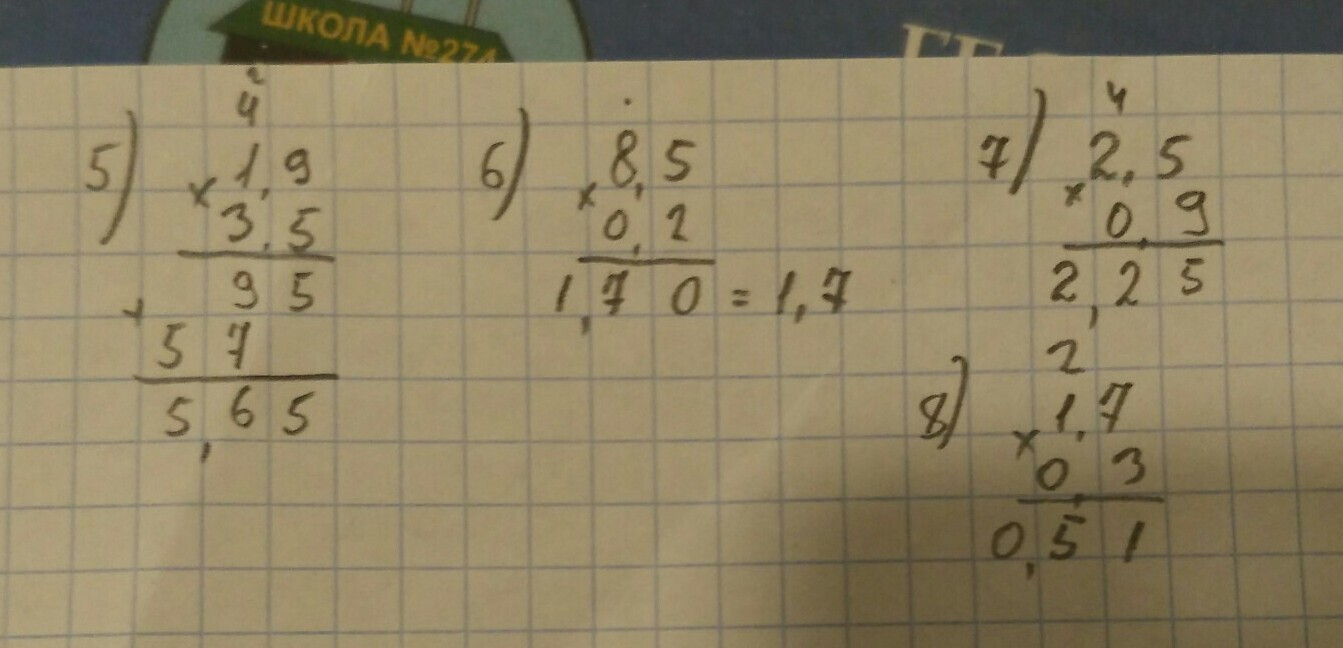 ШКОЛА №274
5)
2
4
× 1,9
3,5
95
+
57
5,65
6)
.
× 8,5
0,2
1,70 = 1,7
7)
4
× 2,5
0,9
2,25
8)
2
× 1,7
0,3
0,51